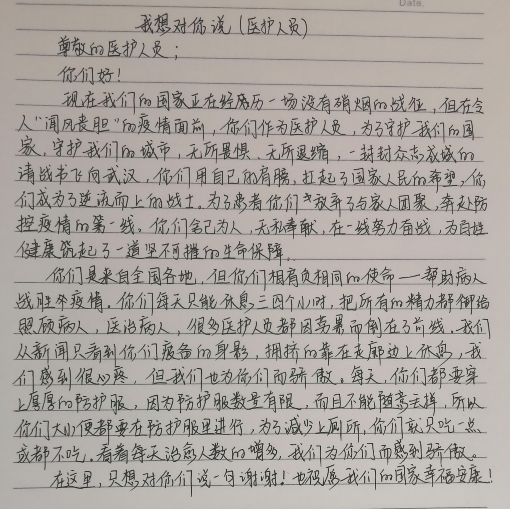 Date.
我想对你说（医护人员）
尊敬的医护人员；
你们好！
现在我们的国家正在经历一场没有硝烟的战征，但在令
人“闻风丧胆”的疫情面前，你们作为医护人员，为了守护我们的国
家，守护我们的城市，无所畏惧、无所退缩，一封封众志成城的
请战书飞向武汉，你们用自己的肩膀，扛起了国家人民的希望，你
们成为了逆流而上的战士。为了患者你们放弃了与家人团聚，奔赴防
控疫情的第一线，你们舍己为人，无私奉献，在一线努力奋战，为百姓
健康筑起了一道坚不可摧的生命保障。
你们是来自全国各地，但你们相肩负相同的使命——帮助病人
战胜疫情。你们每天只能休息三四个小时，把所有的精力都
照顾病人，医治病人，很多医护人员都因劳累而倒在了前线。我们
从新闻只看到你们疲备的身影，拥挤的靠在走廊边上休息，我
们感到很心疼，但我们也为你们而骄傲。每天，你们都要穿
上厚厚的防护服，因为防护服数量有限，而且不能随意去择，所以
你们大小便都要在防护服里进行，为了减少上厕所，你们就只吃一点
或都不吃。看着每天治愈人数的增多，我们为你们而感到骄傲。
在这里，只想对你们说一句谢谢！也祝愿我们的国家幸福安康！